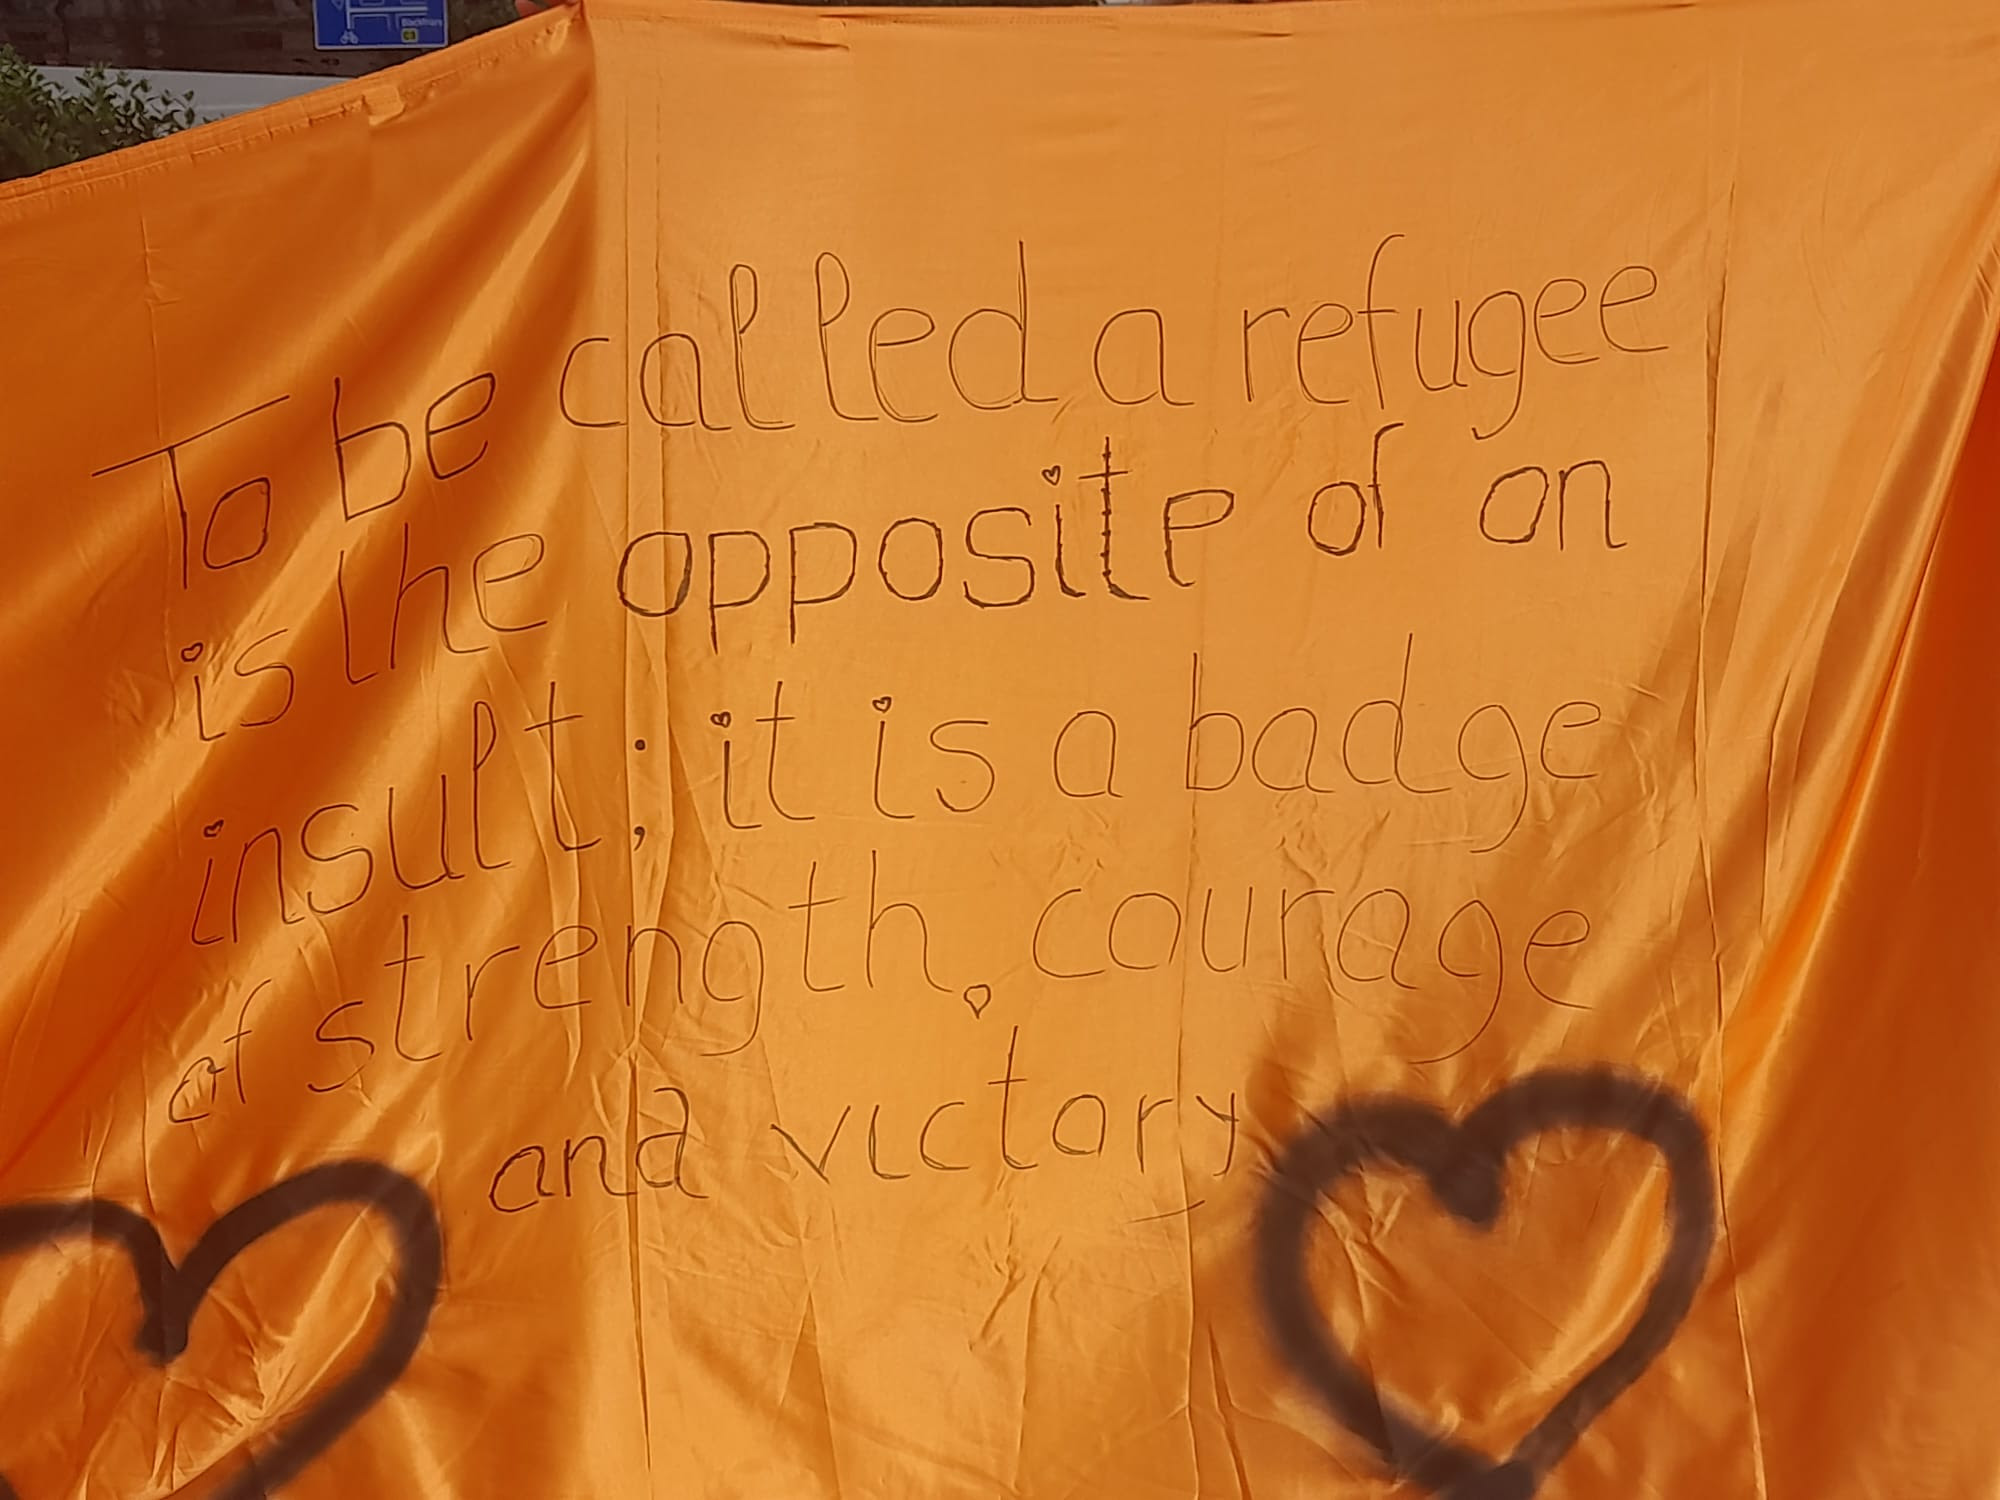 Blackfriars
To be called a refugee
is the opposite of an
insult; it is a badge
of strength, courage
and victory